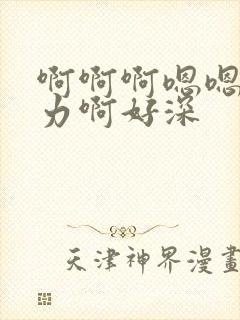 啊啊啊嗯嗯
力啊好深
天津神界漫畫